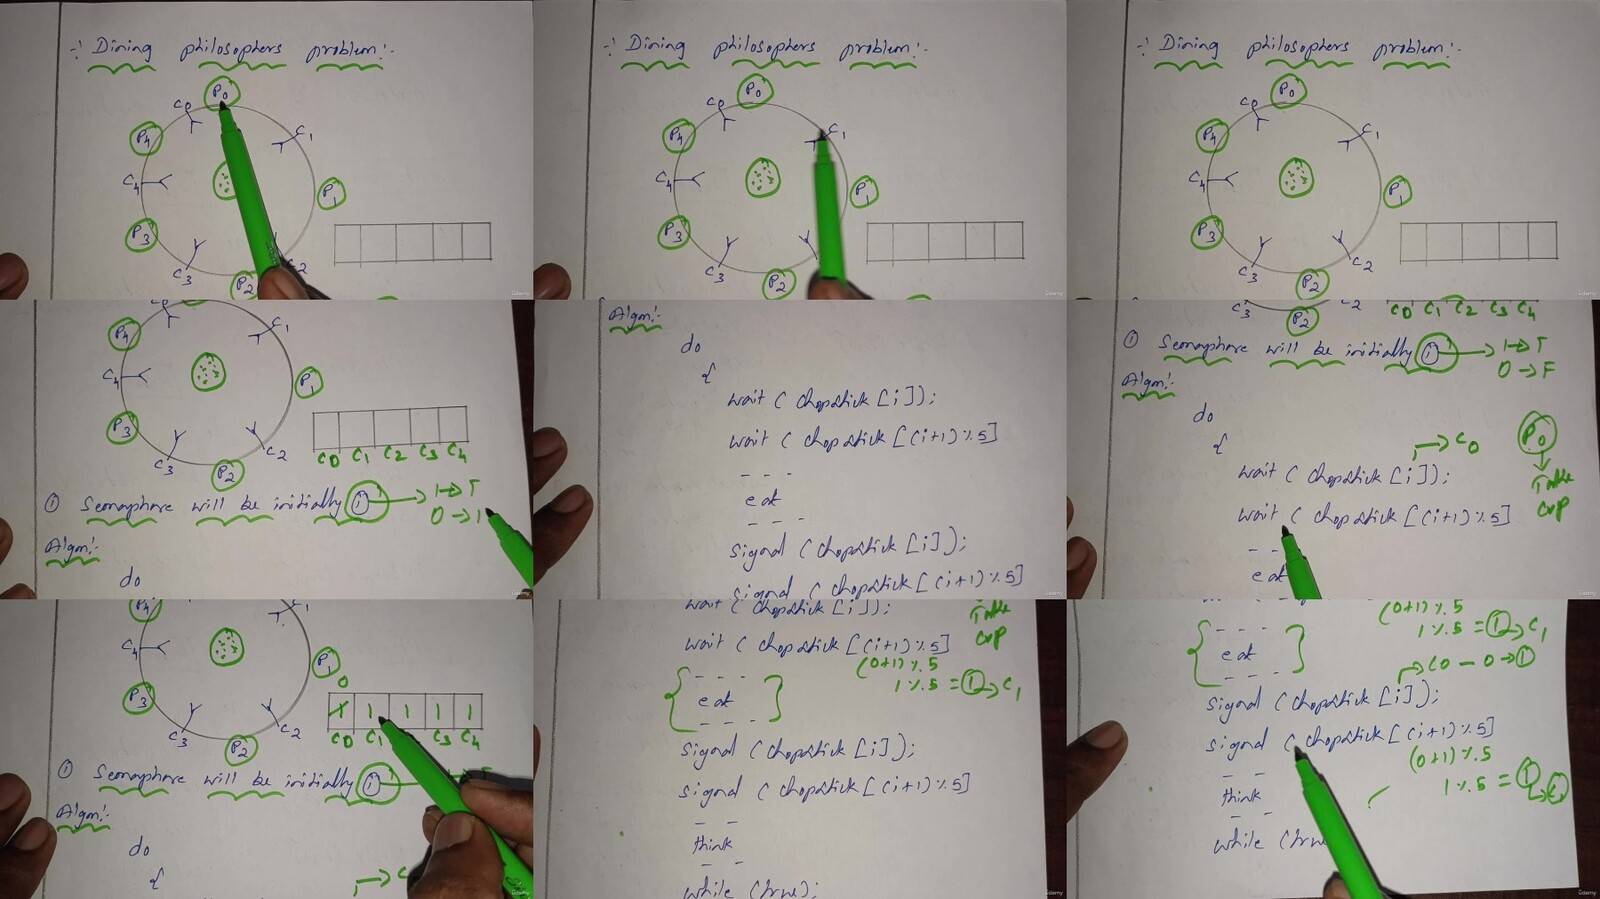 :- Dining philosophers problem:-
P0
C0
C1
P4
C4
P1
P3
C3
C2
P2
:- Dining philosophers problem:-
P0
C0
C1
P4
C4
P1
P3
C3
P2
:- Dining philosophers problem:-
P0
C0
C1
P4
C4
P1
P3
C3
C2
P2
P4
C1
C4
P1
P3
C3
C2
P2
C0 C1 C2 C3 C4
① Semaphore will be initially ① → 1→T
0→
Algm:-
do
Algm:-
do
{
wait ( chopstick [i]);
wait ( chopstick [(i+1) % 5]
- - -
eat
- - -
signal (chopstick [i]);
signal ( chopstick [(i+1) % 5]
C3 P2 C2
C0 C1 C2 C3 C4
① Semaphore will be initially ① → 1→T
0→F
Algm:-
do
{
→ C0
P0
wait ( chopstick [i]);
Take
wait ( chopstick [(i+1) % 5]
cup
- -
eat
P4
C4
P1
0
P3
1 1 1 1 1
C3
C2
P2
C0 C1 C3 C4
① Semaphore will be initially ①
Algm:-
do
{
wait ( chopstick [i]);
Take
wait ( chopstick [(i+1) % 5]
cup
(0+1) % 5
- - -
1 % 5 = ① → C1
eat
- - -
signal (chopstick [i]);
signal ( chopstick [(i+1) % 5]
- -
think
- -
while (true);
(0+1) % 5
- - -
1 % 5 = ① → C1
eat
- - -
→ C0 - 0 → ①
signal (chopstick [i]);
signal ( chopstick [(i+1) % 5]
(0+1) % 5
- -
think
1 % 5 = ①
- -
while (true
Udemy